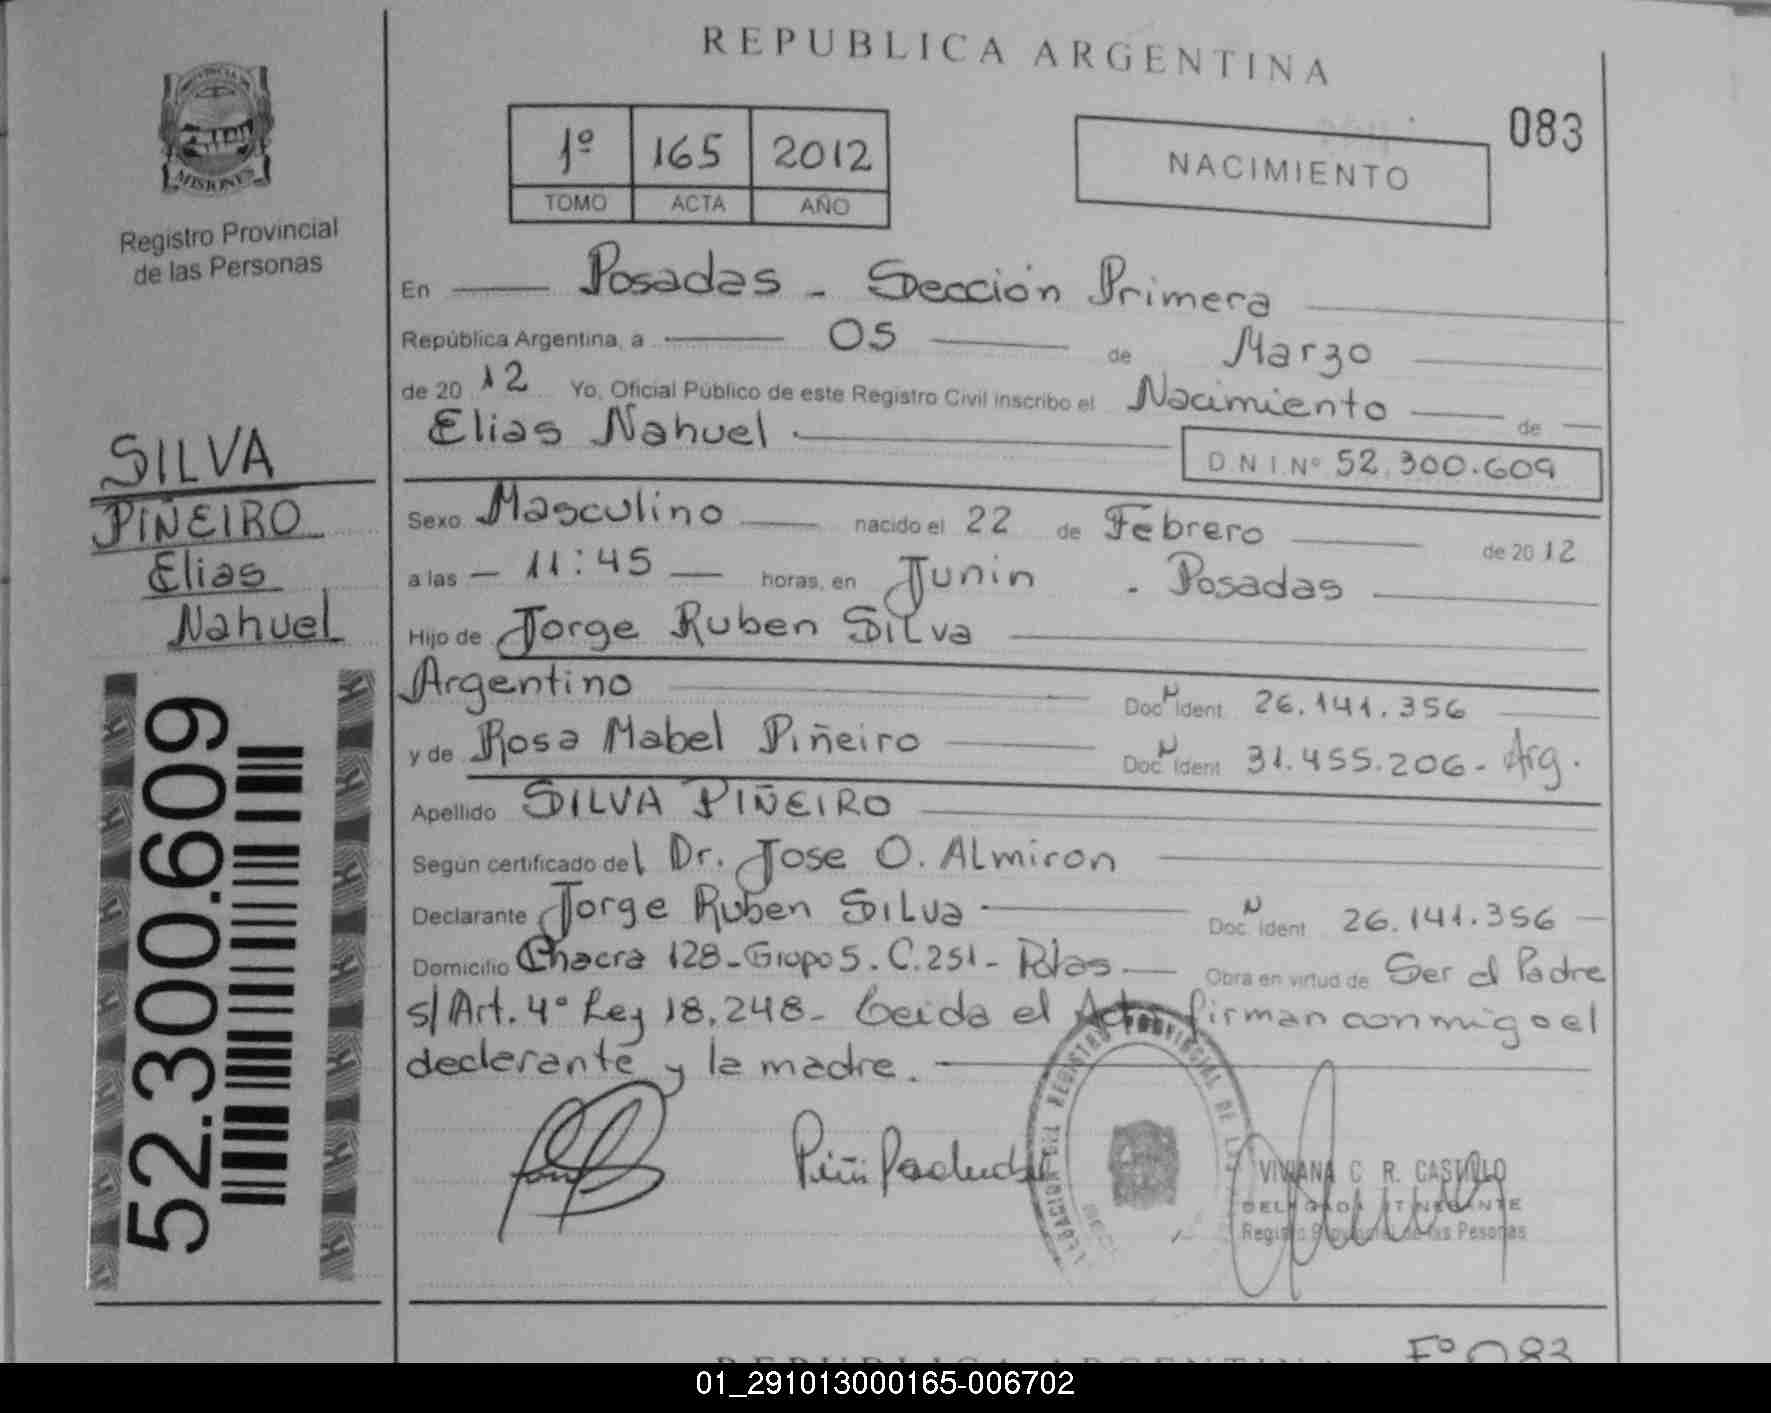 REPUBLICA ARGENTINA
PROVINCIA DE
MISIONES
Registro Provincial
de las Personas
1º 165 2012
TOMO ACTA AÑO
NACIMIENTO
083
En Posadas - Sección Primera
República Argentina, a 05 de Marzo
de 2012 Yo, Oficial Público de este Registro Civil inscribo el Nacimiento de
Elias Nahuel
D.N.I.Nº 52.300.609
SILVA
PIÑEIRO
Elias
Nahuel
52.300.609
Sexo Masculino nacido el 22 de Febrero de 2012
a las - 11:45 - horas, en Junin - Posadas
Hijo de Jorge Ruben Silva
Argentino Doc. N Ident 26.141.356
y de Rosa Mabel Piñeiro Doc. N Ident 31.455.206 - Arg.
Apellido SILVA PIÑEIRO
Según certificado del Dr. Jose O. Almiron
Declarante Jorge Ruben Silva Doc. N Ident 26.141.356
Domicilio Chacra 128 - Grupo 5. C.251 - Pdas. Obra en virtud de Ser el Padre
s/Art. 4º Ley 18.248 - Leida el Acta firman conmigo el
declarante y la madre.
REGISTRO PROVINCIAL DE LAS
VIVIANA C R. CASTILLO
DELEGADA ITINERANTE
Registro Provincial de las Pesonas
REPUBLICA ARGENTINA
Fº 083
01_291013000165-006702